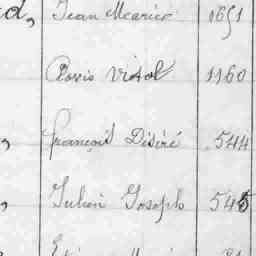 d, Jean Mearice 1651
Clovis Vidal 1160
, François Désiré 544
, Julien Joseph 545